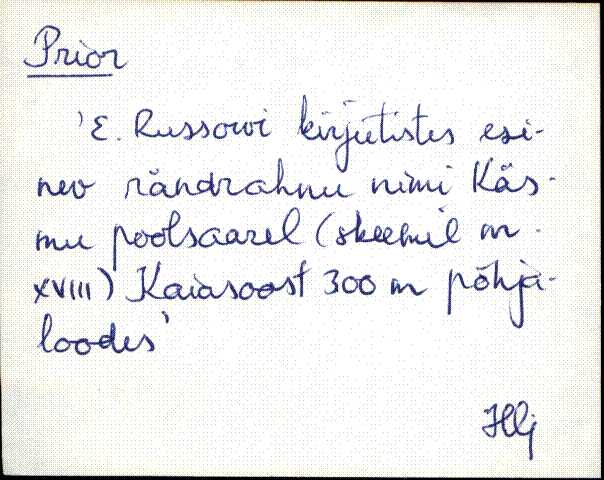 Prior
'E. Russowi kirjutistes esi-
nev rändrahnu nimi Käs-
mu poolsaarel (skeemil nr.
XVIII) Kaiasoost 300 m põhja-
loodes'